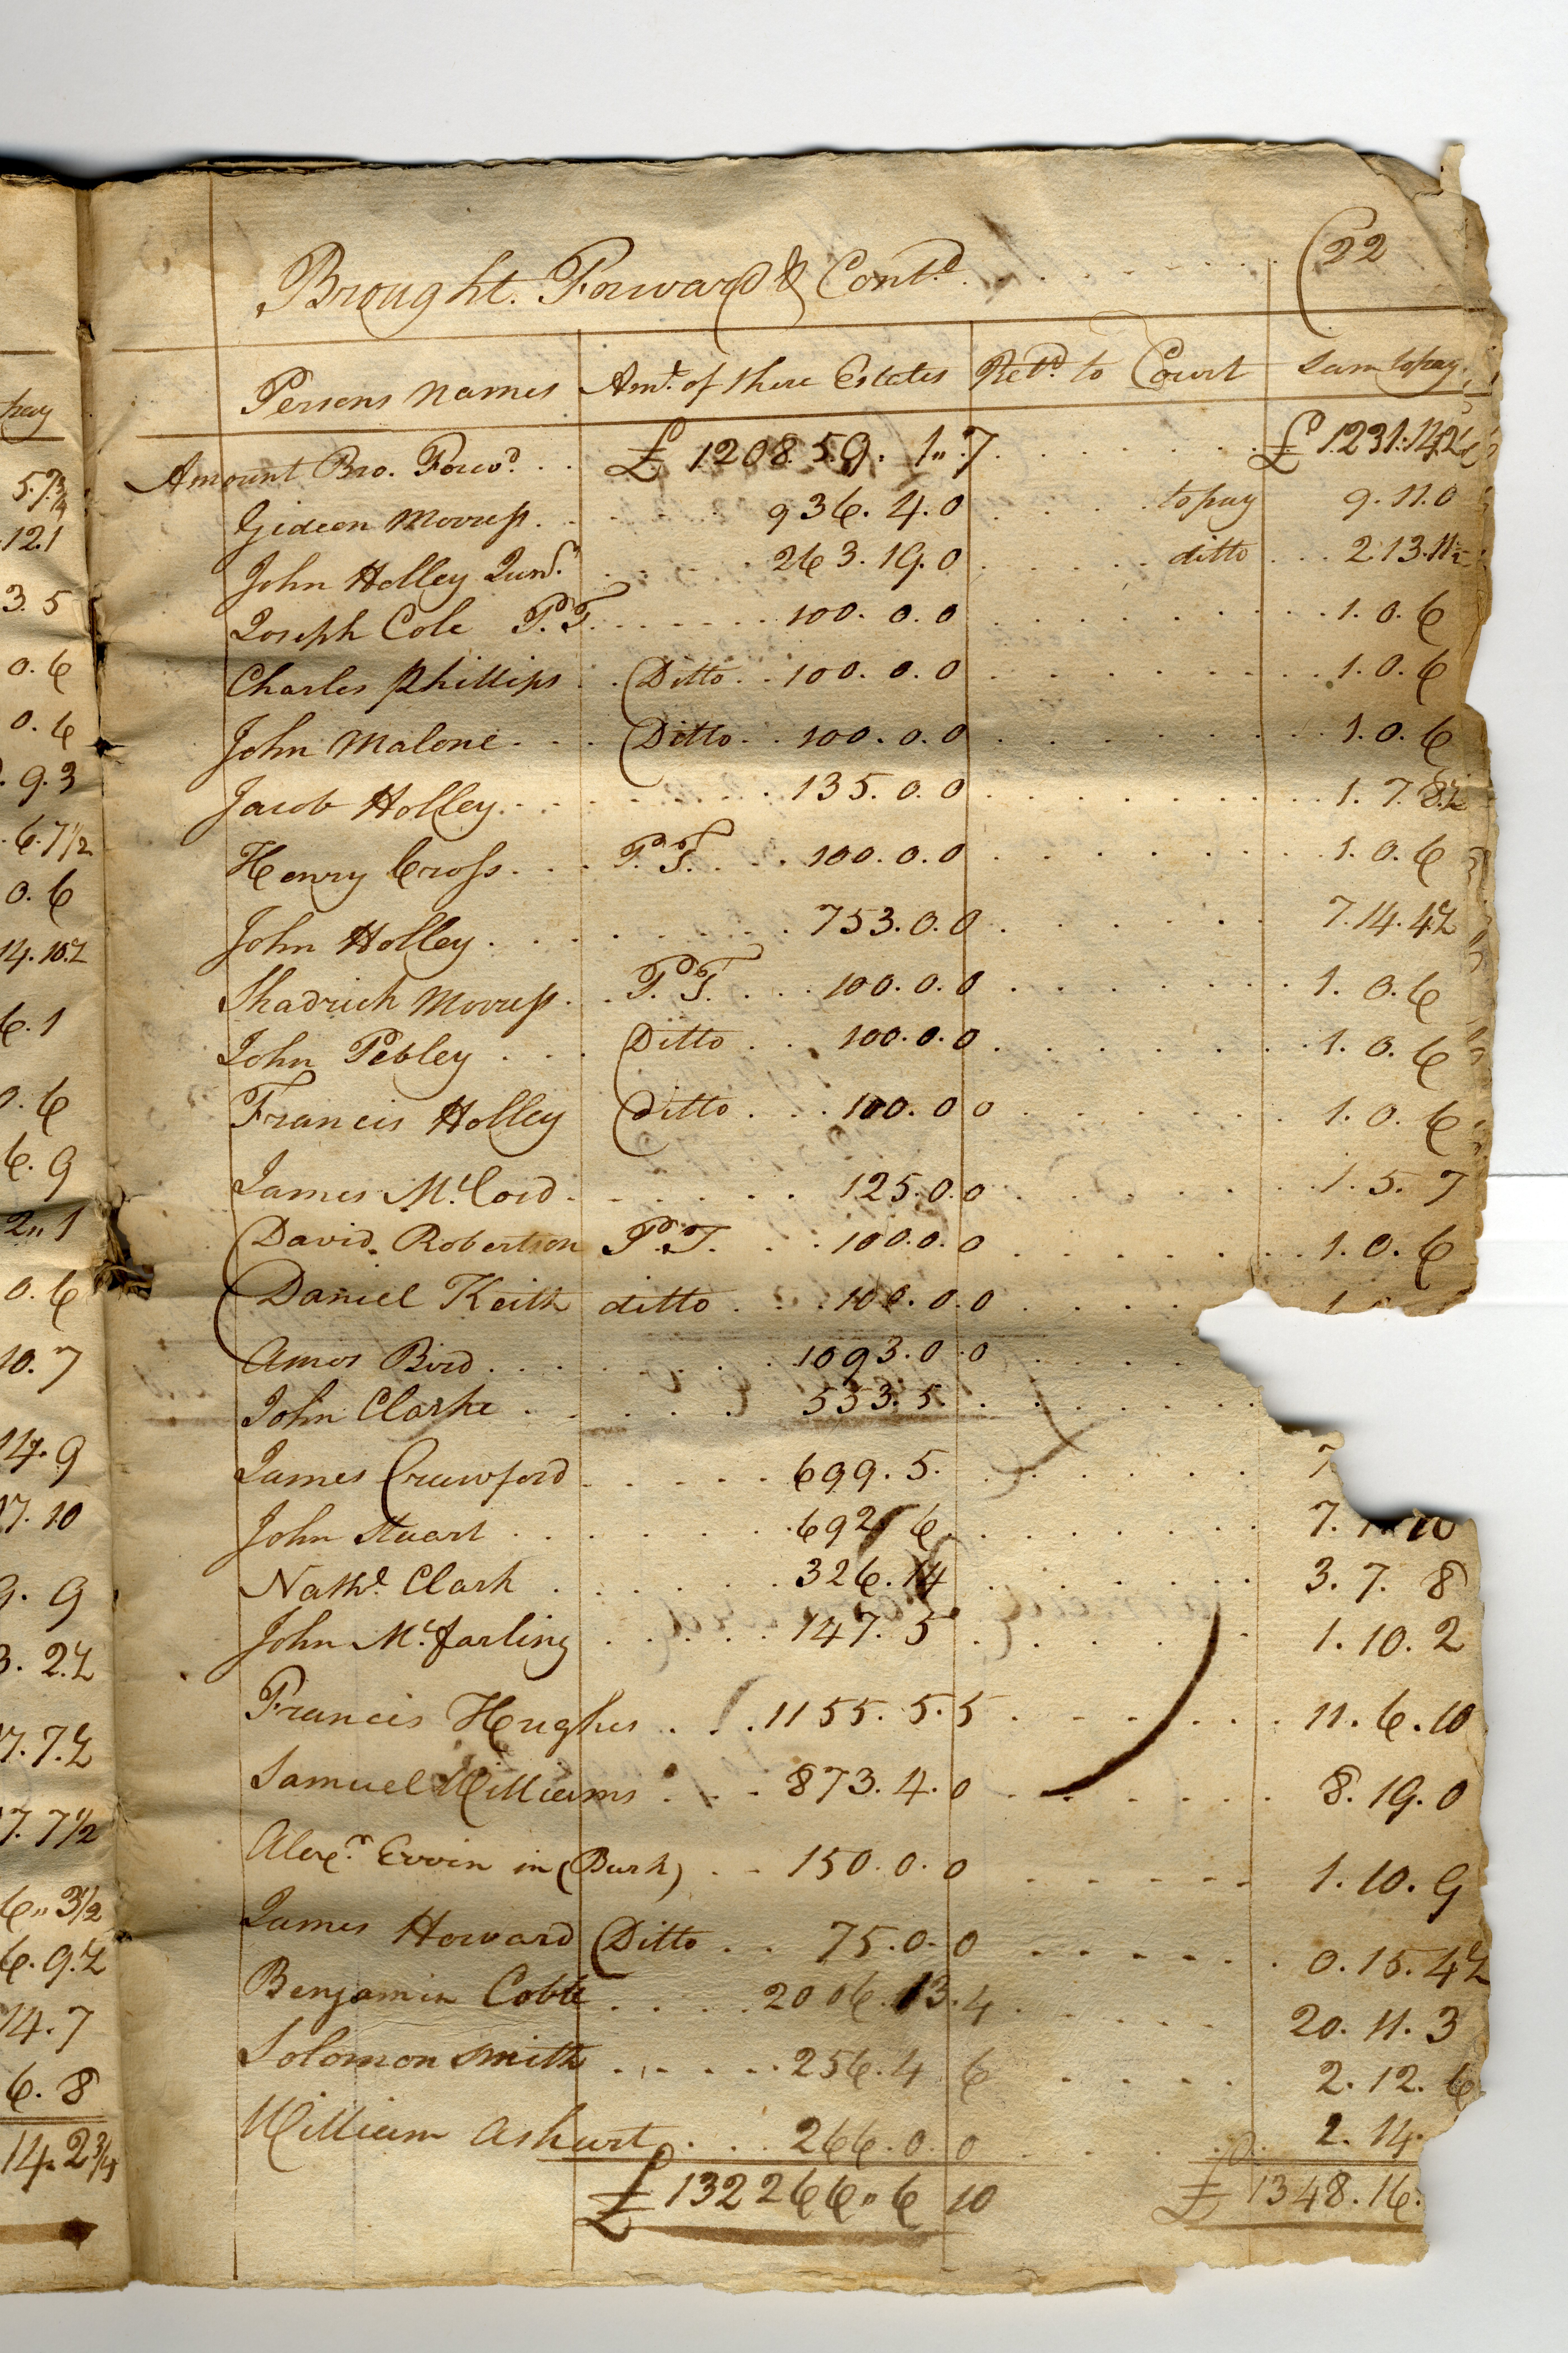 (22
Brought Forward & Contd
Persons Names Amt. of there Estates Retd. to Court Sum to pay
Amount Bro. Forwd. £ 120859. 1. 7 £ 1231.14.2
Gideon Morress 936. 4. 0 to pay 9. 11. 0
John Holley Junr. 263. 19. 0 ditto 2. 13. 11½
Joseph Cole P. T. 100. 0. 0 1. 0. 6
Charles Phillips Ditto 100. 0. 0 1. 0. 6
John Malone Ditto 100. 0. 0 1. 0. 6
Jacob Holley 135. 0. 0 1. 7. 8½
Henry Cross P. T. 100. 0. 0 1. 0. 6
John Holley 753. 0. 0 7. 14. 4½
Shadrich Morress P. T. 100. 0. 0 1. 0. 6
John Pebley Ditto 100. 0. 0 1. 0. 6
Francis Holley Ditto 100. 0 0 1. 0. 6
James McCord 125. 0. 0 1. 5. 7
David Robertson P. T. 100. 0. 0 1. 0. 6
Daniel Keith ditto 100. 0. 0
Amos Bird 1093. 0. 0
John Clarke 553. 5
James Crawford 699. 5. 7.
John Stuart 692. 6 7. 10
Nathl. Clark 326. 14 3. 7. 8
John Mcfarling 147. 5 1. 10. 2
Francis Hughes 1155. 5. 5 11. 6. 10
Samuel Williams 873. 4. 0 8. 19. 0
Alexr. Ervin in (Burk) 150. 0. 0 1. 10. 9
James Howard Ditto 75. 0. 0 0. 15. 4½
Benjamin Cobb 2006. 13. 4 20. 11. 3
Solomon Smith 256. 4 6 2. 12. 6
William Ashurt 266. 0. 0 2. 14.
£ 132266" 6 10 £ 1348. 16.
pay
5.7¾
12.1
3. 5
0. 6
0. 6
. 9. 3
. 6. 7½
0. 6
14. 10.½
6. 1
0. 6
6. 9
2" 1
0. 6
10. 7
14. 9
17. 10
9. 9
3. 2.½
7. 7.½
7. 7½
6" 3½
6. 9.½
14. 7
6. 8
14. 2¾